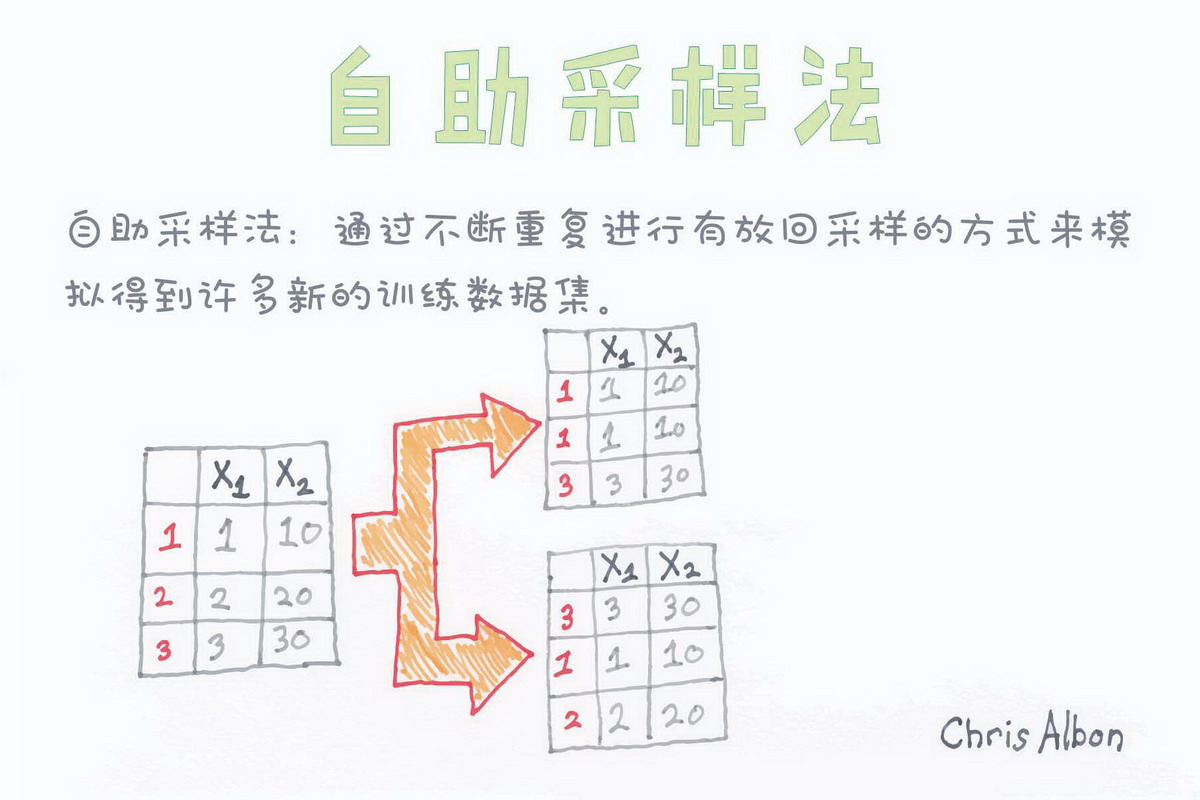 自助采样法
自助采样法：通过不断重复进行有放回采样的方式来模
拟得到许多新的训练数据集。
X1 X2
1 1 10
2 2 20
3 3 30
X1 X2
1 1 10
1 1 10
3 3 30
X1 X2
3 3 30
1 1 10
2 2 20
Chris Albon